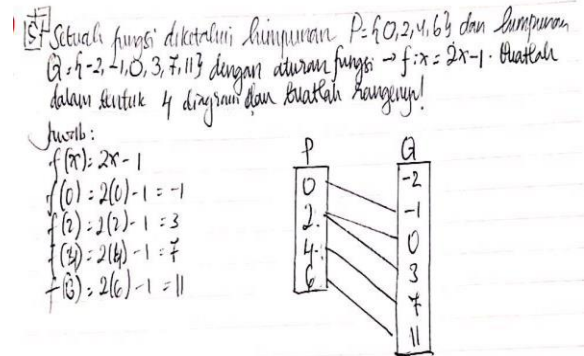 Sebuah fungsi diketahui himpunan P={0,2,4,6} dan himpunan
Q={-2,-1,0,3,7,11} dengan aturan fungsi → f:x=2x-1. Buatlah
dalam bentuk 4 diagram dan buatlah rangenya!
Jwb:
f(x)=2x-1
f(0)=2(0)-1=-1
f(2)=2(2)-1=3
f(4)=2(4)-1=7
f(6)=2(6)-1=11
P Q
0 -2
2 -1
4 0
6 3
7
11